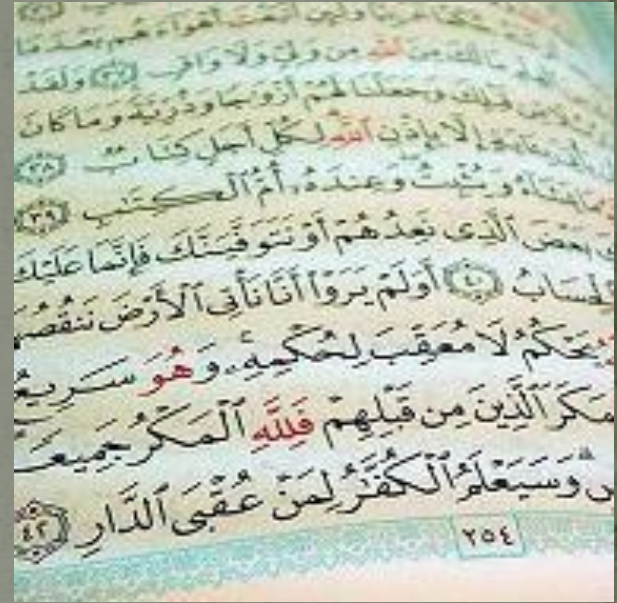 أهواءهم بعدما
مالك من الله من ولي ولا واق ٣٧ ولقد
من قبلك وجعلنا لهم أزواجا وذرية وما كان
إلا بإذن الله لكل أجل كتاب ٣٨
ما يشاء ويثبت وعنده أم الكتب ٣٩
بعض الذى نعدهم أو نتوفينك فإنما عليك
الحساب ٤٠ أولم يروا أنا نأتى الأرض ننقصها
يحكم لا معقب لحكمه وهو سريع
مكر الذين من قبلهم فلله المكر جميعا
س وسيعلم الكفر لمن عقبى الدار ٤٢
٢٥٤